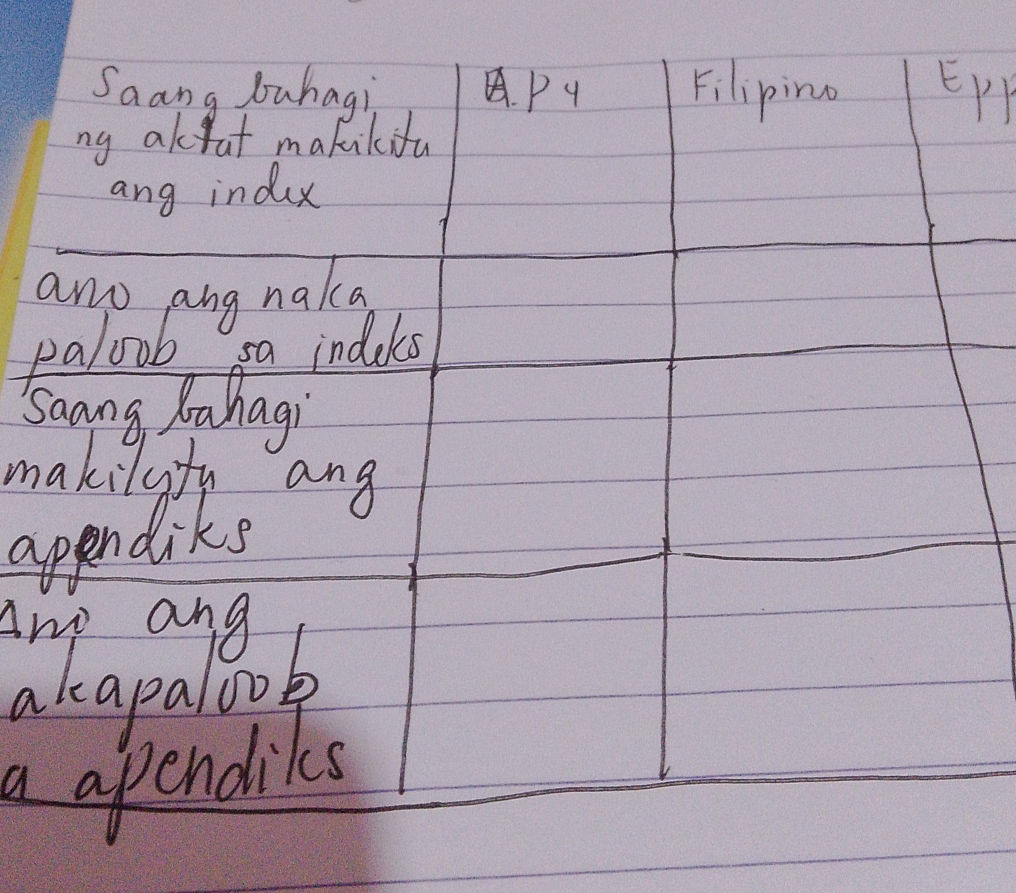 Saang bahagi
ng aktat makikita
ang index
A.P 4
Filipino
Epp
ano ang naka
paloob sa indeks
Saang bahagi
makikita ang
apendiks
Ano ang
akapaloob
a apendiks